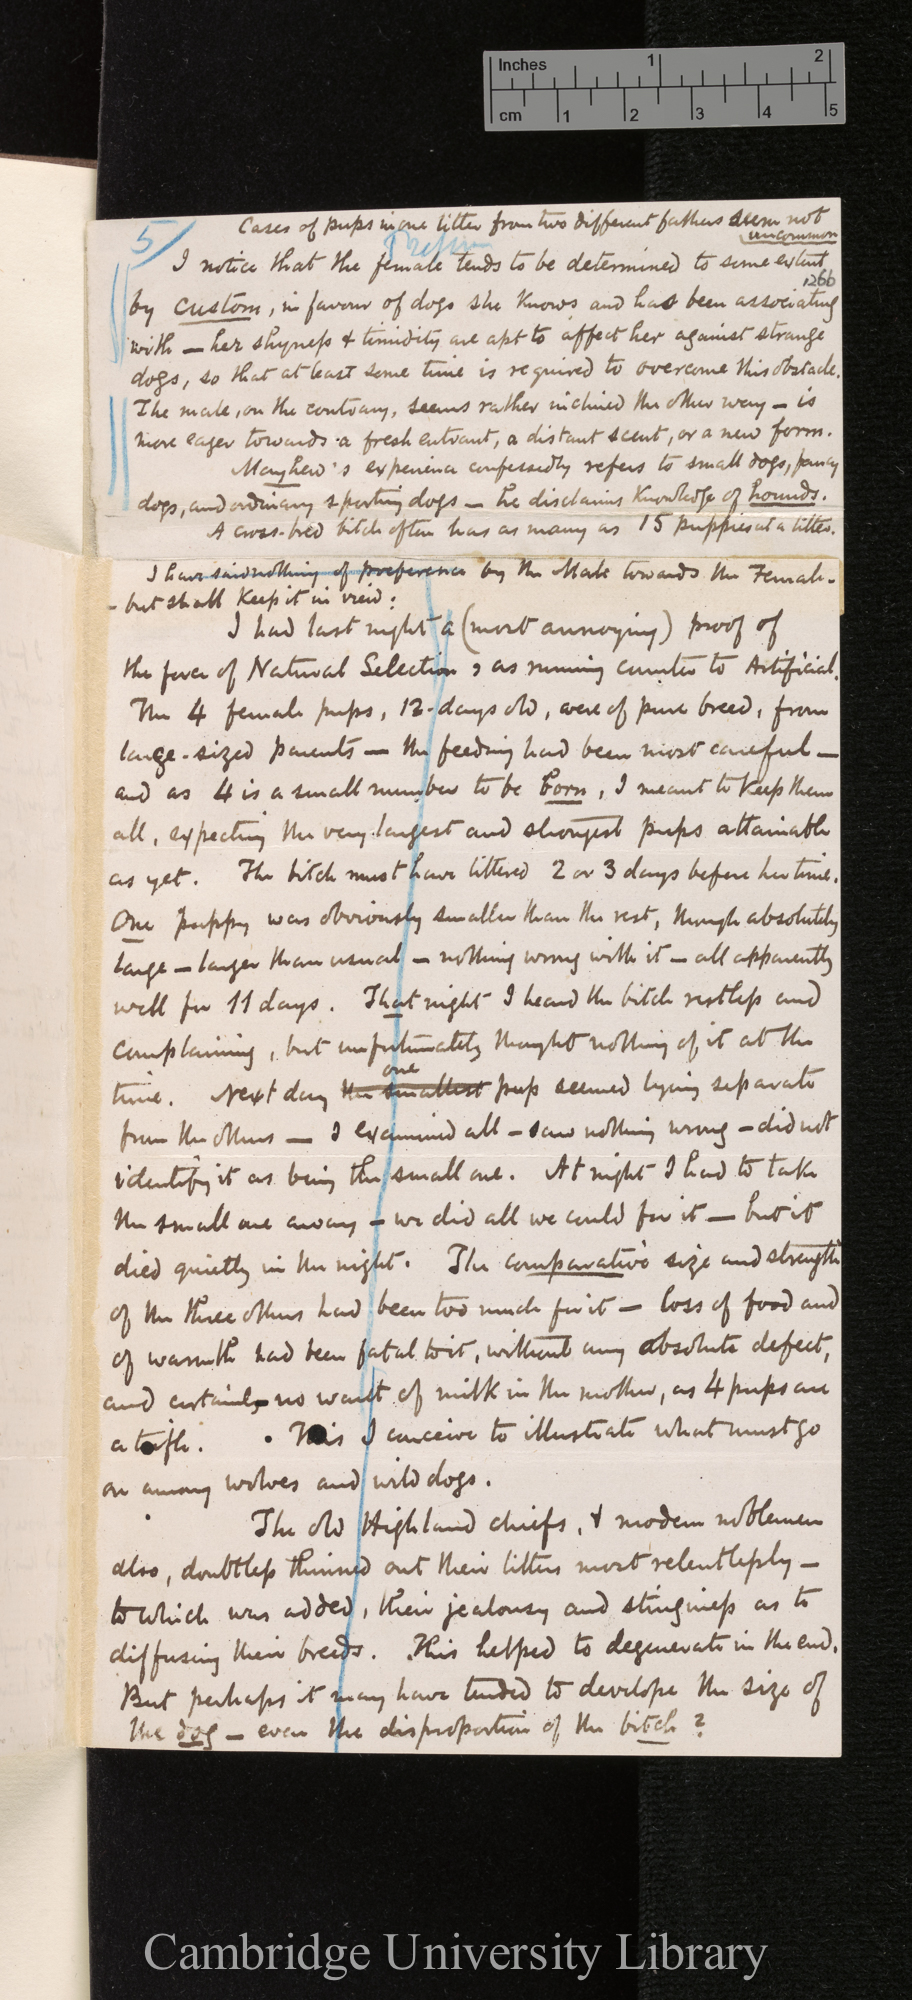 Inches 1 2
cm 1 2 3 4 5
5
Cases of pups in one litter from two different fathers seem not
uncommon
I notice that the female tends to be determined to some extent
266
by custom, in favour of dogs she knows and has been associating
with — her shyness & timidity are apt to affect her against strange
dogs, so that at least some time is required to overcome this obstacle.
The male, on the contrary, seems rather inclined the other way — is
more eager towards a fresh entrant, a distant scent, or a new form.
Mayhew's experience confessedly refers to small dogs, fancy
dogs, and ordinary sporting dogs — he disclaims knowledge of hounds.
A cross-bred bitch often has as many as 15 puppies at a litter.
I have said nothing of preference by the Male towards the Female -
- but shall keep it in view:
I had last night a (most annoying) proof of
the force of Natural Selection, as running counter to Artificial.
The 4 female pups, 12-days old, were of pure breed, from
large-sized parents — the feeding had been most careful —
and as 4 is a small number to be born, I meant to keep them
all, expecting the very largest and strongest pups attainable
as yet. The bitch must have littered 2 or 3 days before her time.
One puppy was obviously smaller than the rest, though absolutely
large — larger than usual — nothing wrong with it — all apparently
well for 11 days. That night I heard the bitch restless and
complaining, but unfortunately thought nothing of it at the
one
time. Next day the smallest pup seemed lying separate
from the others — I examined all — saw nothing wrong — did not
identify it as being the small one. At night I had to take
the small one away — we did all we could for it — but it
died quietly in the night. The comparative size and strength
of the three others had been too much for it — loss of food and
of warmth had been fatal to it, without any absolute defect,
and certainly no want of milk in the mother, as 4 pups are
a trifle. This I conceive to illustrate what must go
on among wolves and wild dogs.
The old Highland chiefs, & modern noblemen
also, doubtless thinned out their litters most relentlessly —
to which was added, their jealousy and stinginess as to
diffusing their breeds. This helped to degenerate in the end.
But perhaps it may have tended to develope the size of
the dog — even the disproportion of the bitch?
Cambridge University Library